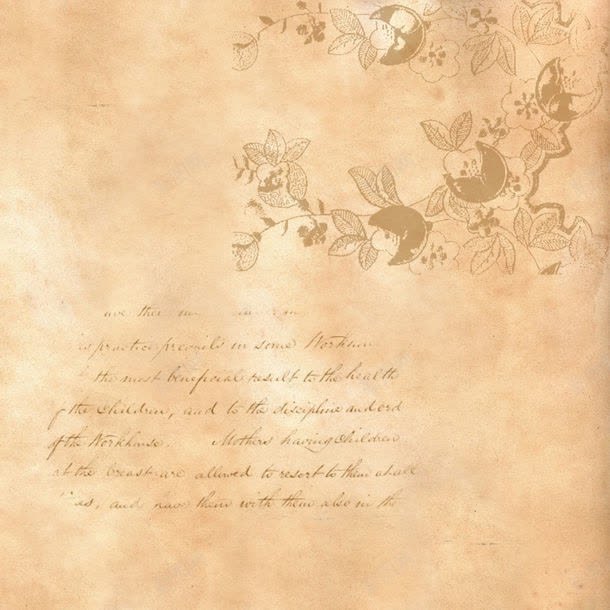 ave the
is practice prevails in some Workhou
the most beneficial result to the health
of the Children, and to the discipline and ord
of the Workhouse. Mothers having Children
at the breast are allowed to resort to them at all
as, and have them with them also in the